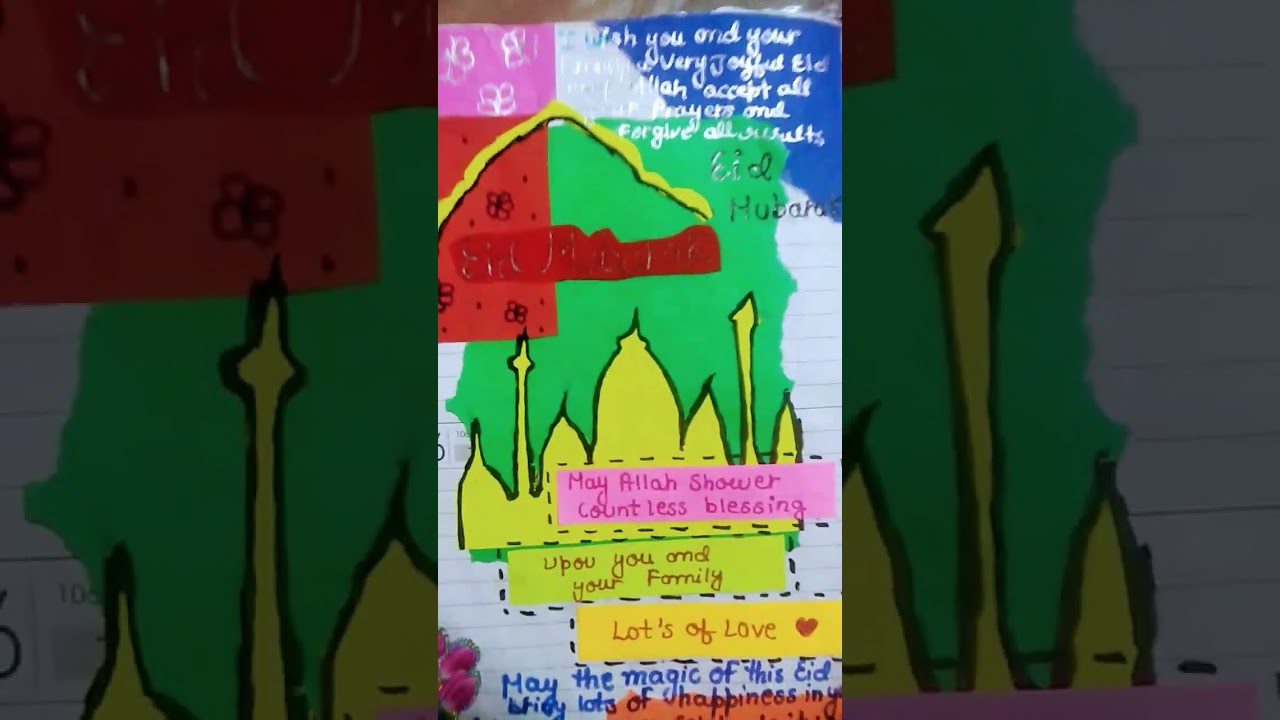 I wish you and your
Very Joyful Eid
Allah accept all
Prayers and
Forgive all
Eid
Mubarak
Eid Mubarak
May Allah Shower
countless blessing
upou you and
your Family
Lot's of Love
May the magic of this Eid
lots of happiness in